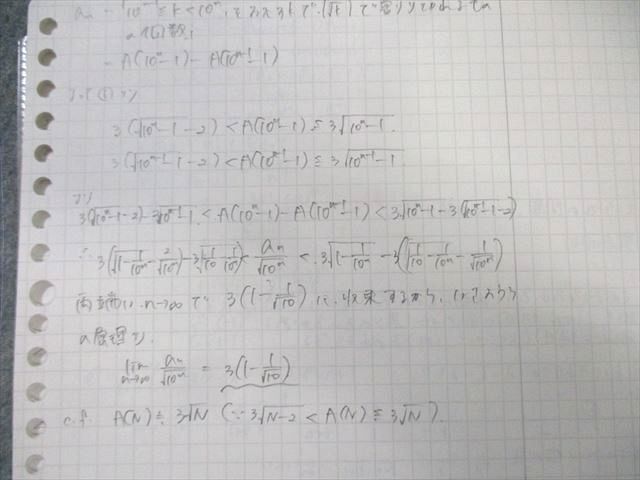 aₙ = 「10ⁿ⁻¹ ≦ k < 10ⁿ, をみたすkで, [√k] で割り
の個数」
= A(10ⁿ-1) - A(10ⁿ⁻¹-1)
よって①より
3(√(10ⁿ-1) -2) < A(10ⁿ-1) ≦ 3√(10ⁿ-1).
3(√(10ⁿ⁻¹-1) -2) < A(10ⁿ⁻¹-1) ≦ 3√(10ⁿ⁻¹-1)
より
3(√(10ⁿ-1) -2) - 3√(10ⁿ⁻¹-1) < A(10ⁿ-1) - A(10ⁿ⁻¹-1) < 3√(10ⁿ-1) - 3(√(10ⁿ⁻¹-1) -2)
∴ 3(√(1-1/10ⁿ) - 2/√10ⁿ) - 3√(1/10 - 1/10ⁿ) < aₙ/√10ⁿ < 3√(1-1/10ⁿ) - 3(√(1/10 - 1/10ⁿ) - 1/√10ⁿ)
両端は、n→∞で 3(1-1/√10) に、収束するから、はさみうち
の原理より.
lim n→∞ aₙ/√10ⁿ = 3(1-1/√10)
c.f. A(N) ≒ 3√N (∵ 3√N-2 < A(N) ≦ 3√N).